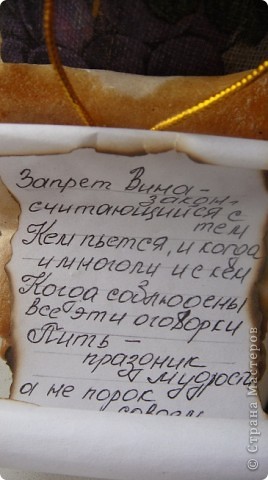 Запрет Вина-
закон,
считающийся с
тем
Кем пьется, и когда
и много ли и с кем
Когда соблюдены
все эти оговорки
Пить -
праздник
мудрости
а не порок
совсем
© Страна Мастеров